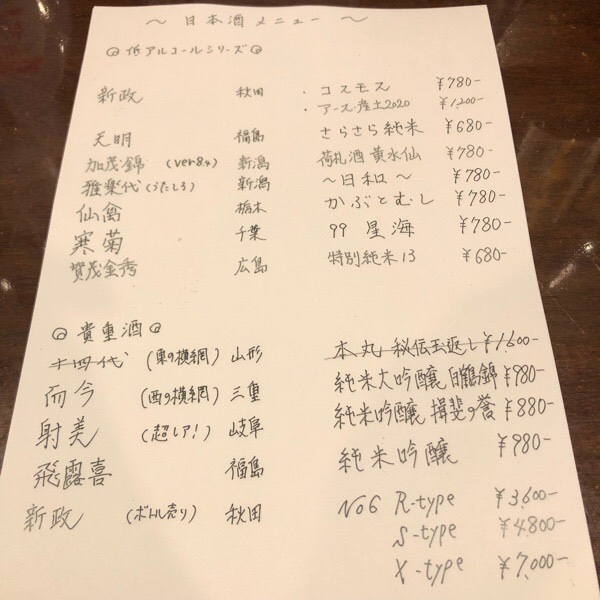 ～日本酒メニュー～
◎低アルコールシリーズ◎
新政 秋田 ・コスモス ¥780-
・アース・産土2020 ¥1,200-
天明 福島 さらさら純米 ¥680-
加茂錦(ver8.4) 新潟 荷札酒 黄水仙 ¥780-
雅楽代(うたしろ) 新潟 ～日和～ ¥780-
仙禽 栃木 かぶとむし ¥780-
寒菊 千葉 99 星海 ¥780-
賀茂金秀 広島 特別純米13 ¥680-
◎貴重酒◎
十四代 (東の横綱) 山形 本丸 秘伝玉返し ¥1,600-
而今 (西の横綱) 三重 純米大吟醸 白鶴錦 ¥980-
射美 (超レア!) 岐阜 純米吟醸 揖斐の誉 ¥880-
飛露喜 福島 純米吟醸 ¥980-
新政 (ボトル売り) 秋田 No6 R-type ¥3,600-
S-type ¥4,800-
X-type ¥7,000-